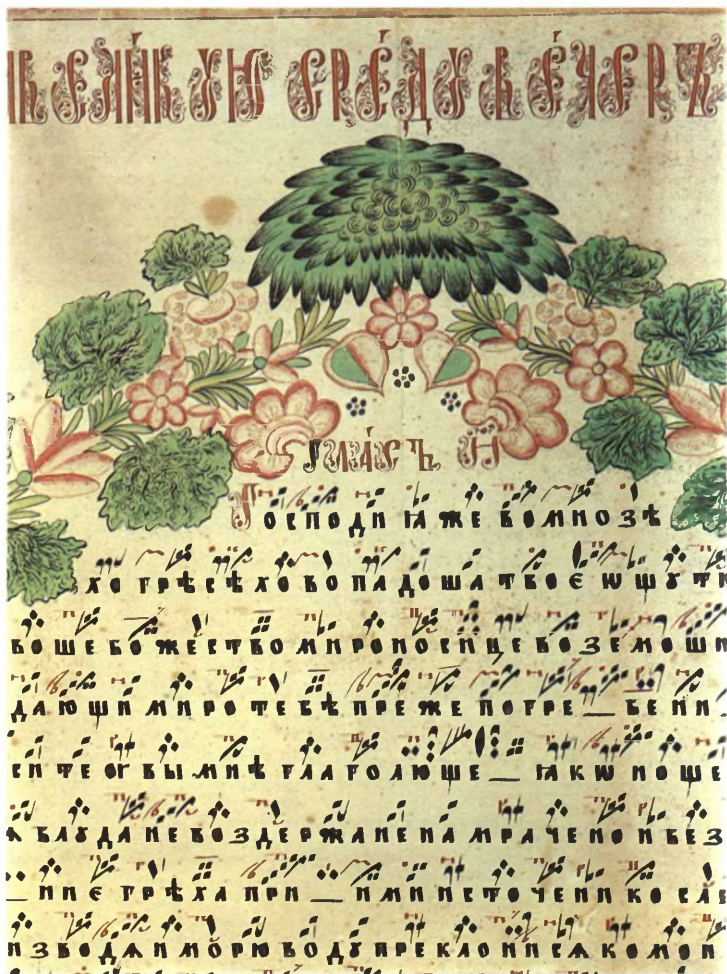 ВЕЛИ́КУЮ СРЕ́ДУ ВЕ́ЧЕРЪ
ГЛА́СЪ И҃
ГОСПОДИ ІАЖЕ ВО МНОЗѢ
ХО ГРѢСѢХО ВОПАДОША ТВОЄ Ѡ ЩУТИ
ВОШЕ БОЖЕСТВО МИРОНОСИЦЕ ВОЗЕМОШИ
ДАЮЩИ МИРО ТЕБѢ ПРЕЖЕ ПОГРЕ — БЕНИ
СИ ТЕ ОУВЫ МНѢ ГЛАГОЛЮЩЕ — ІАКѠ НОЩЕ
Ѧ БЛУДА НЕВОЗДЕРЖАНЕНА МРАЧЕНО И БЕЗ
— НИЄ ГРѢХА ПРИ — ИМИ ИСТОЧЕНИКО СЛЕ
ИЗВОДѦИ МОРЮ ВОДУ ПРЕКЛОНИСѦ КО МОИ